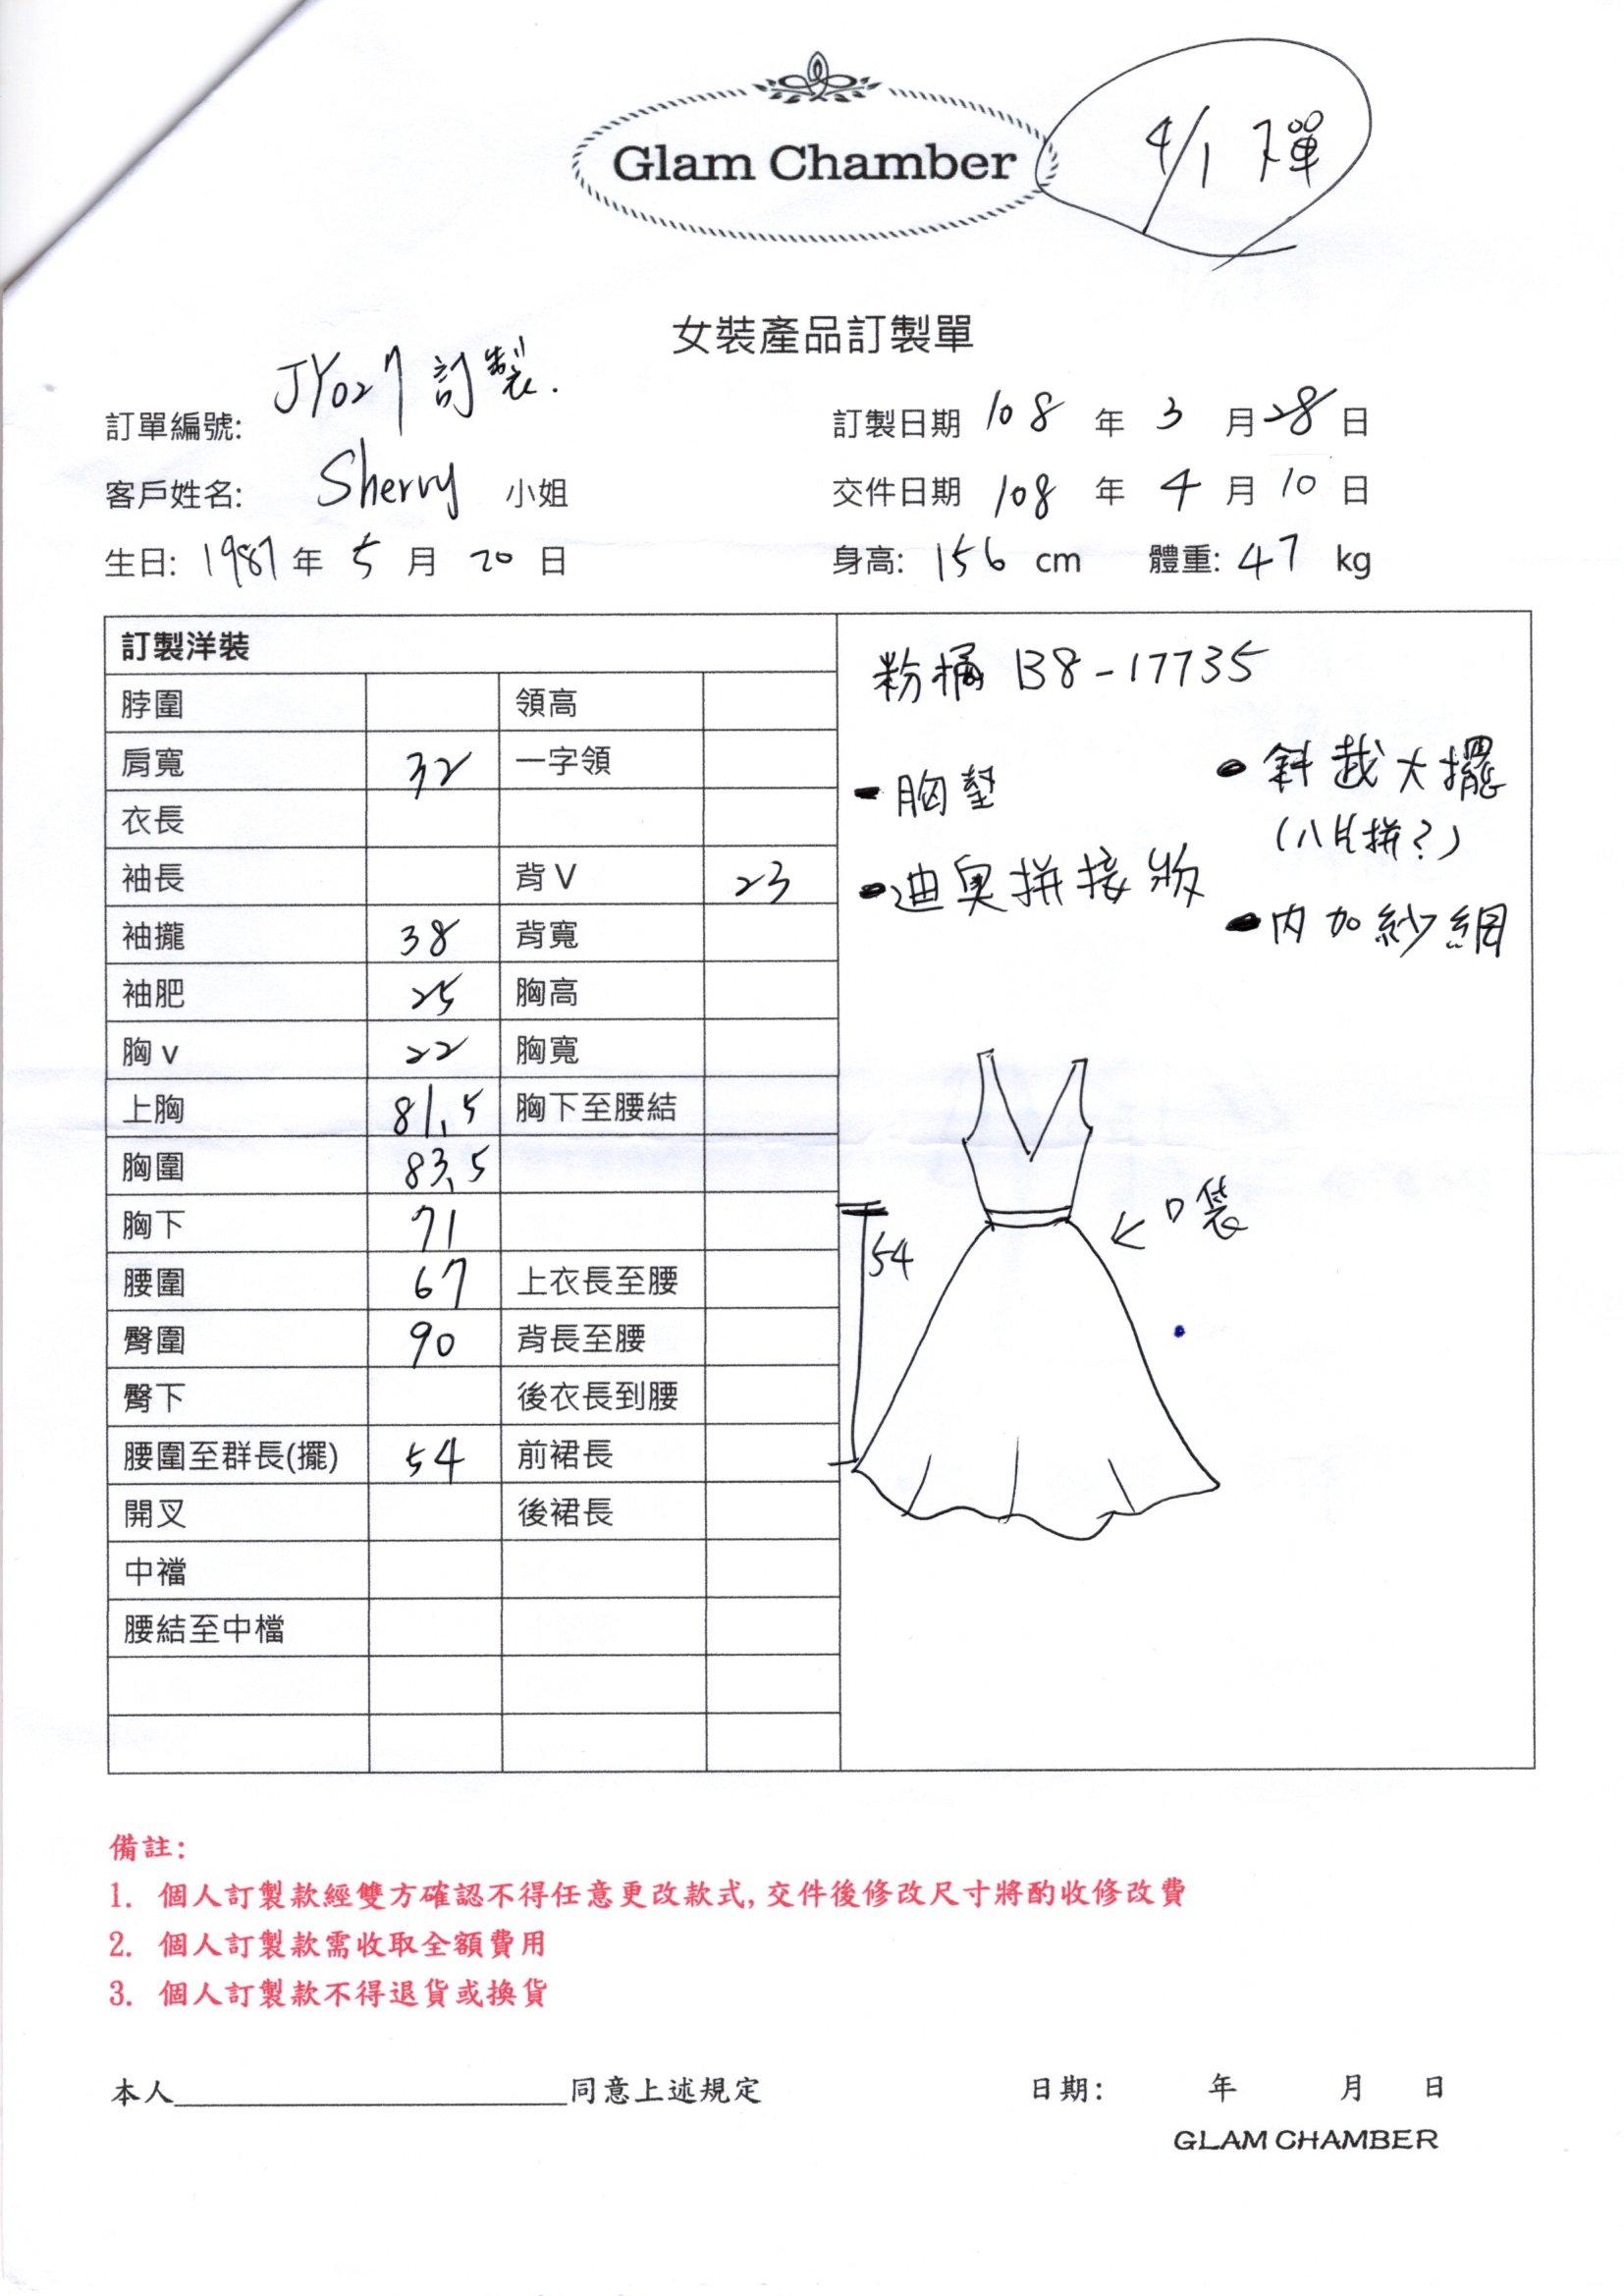 Glam Chamber
4/1 下單
女裝產品訂製單
訂單編號: JY027 訂製.
訂製日期 108 年 3 月 28 日
客戶姓名: Sherry 小姐
交件日期 108 年 4 月 10 日
生日: 1987 年 5 月 20 日
身高: 156 cm 體重: 47 kg
訂製洋裝
脖圍 領高
肩寬 32 一字領
衣長
袖長 背V 23
袖攏 38 背寬
袖肥 25 胸高
胸v 22 胸寬
上胸 81.5 胸下至腰結
胸圍 83.5
胸下 71
腰圍 67 上衣長至腰
臀圍 90 背長至腰
臀下 後衣長到腰
腰圍至群長(擺) 54 前裙長
開叉 後裙長
中襠
腰結至中檔
粉橘 B8-17735
- 胸墊
• 斜裁大擺
(八片拼?)
• 迪奧拼接版
• 內加紗網
口袋
54
備註:
1. 個人訂製款經雙方確認不得任意更改款式,交件後修改尺寸將酌收修改費
2. 個人訂製款需收取全額費用
3. 個人訂製款不得退貨或換貨
本人 同意上述規定 日期: 年 月 日
GLAM CHAMBER